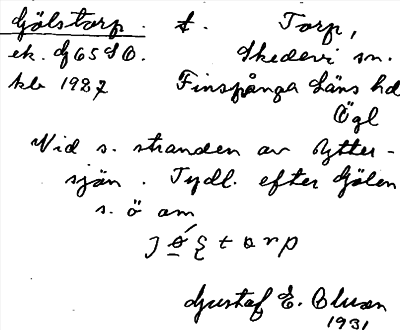 Gölstorp. t. Torp,
ek. Gf 65 SO. Skedevi sn.
kbl 1927 Finspånga läns hd
Ögl
Vid s. stranden av Ytter-
sjön. Tydl. efter Gölen
s. ö om
Gustaf E. Olsson
1931